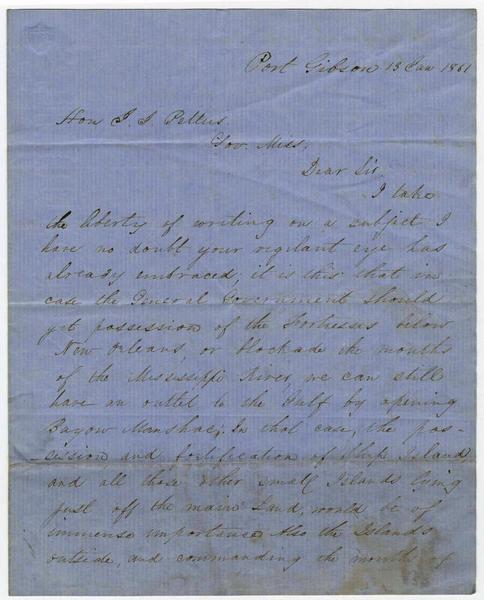 Port Gibson 13 Jan 1861
Hon J. J. Pettus
Gov. Miss.
Dear Sir,
I take
the liberty of writing on a subject I
have no doubt your vigilant eye has
already embraced; it is this that in
case the General Government should
get possession of the Fortresses below
New Orleans, or blockade the mouths
of the Mississippi River, we can still
have an outlet to the Gulf by opening
Bayou Manshac; In that case, the pos-
-cission and fortification of Ship Island,
and all those other small Islands lying
just off the main Land, would be of
immense importance. Also the Islands
outside, and commanding the mouth of